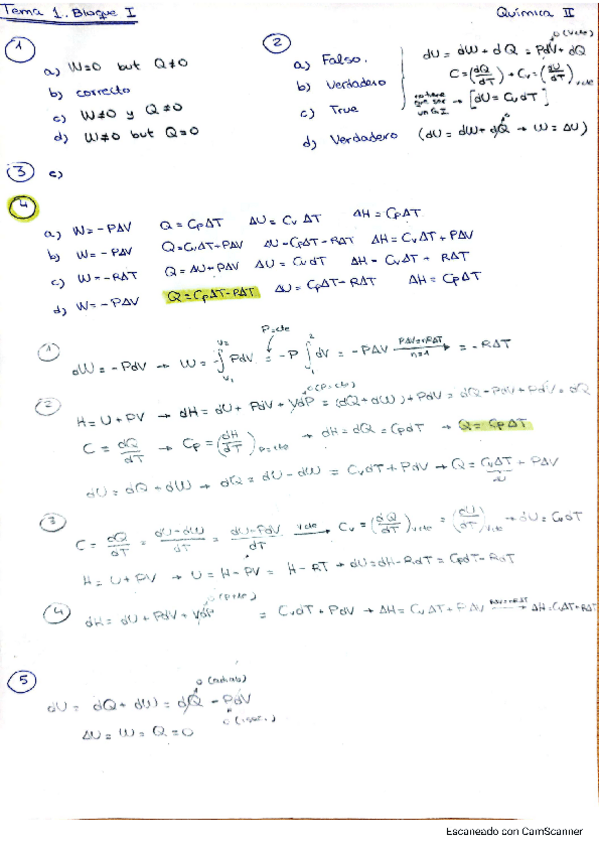 Tema 1. Bloque I
Química II
1
a) W=0 but Q≠0
b) correcto
c) W≠0 y Q≠0
d) W≠0 but Q=0
2
a) Falso.
b) Verdadero
c) True
d) Verdadero (dU = dW + dQ → W = ΔU)
0 (Vcte)
dU = dW + dQ = PdV + dQ
C = (dQ/dT) → Cv = (dU/dT) vcte
→ [dU = CvdT]
3 c)
4
a) W = -PΔV Q = CpΔT ΔU = Cv ΔT ΔH = CpΔT
b) W = -PΔV Q = CvΔT + PΔV ΔU = CpΔT - RΔT ΔH = CvΔT + PΔV
c) W = -RΔT Q = ΔU + PΔV ΔU = CvdT ΔH = CvΔT + RΔT
d) W = -PΔV Q = CpΔT - RΔT ΔU = CpΔT - RΔT ΔH = CpΔT
1 dW = -PdV → W = -∫PdV = -P∫dV = -PΔV → = -RΔT
P=cte
PΔV=nRΔT
n=1
2
0 (P=cte)
H = U + PV → dH = dU + PdV + VdP = (dQ + dW) + PdV = dQ - PdV + PdV = dQ
C = dQ/dT → Cp = (dH/dT) P=cte → dH = dQ = CpdT → Q = CpΔT
dU = dQ + dW → dQ = dU - dW = CvdT + PdV → Q = CvΔT + PΔV
3
C = dQ/dT = dU-dW/dT = dU-PdV/dT → vcte Cv = (dQ/dT) vcte = (dU/dT) vcte → dU = CvdT
H = U + PV → U = H - PV = H - RT → dU = dH - RdT = CpdT - RdT
4
0 (Pcte)
dH = dU + PdV + VdP = CvdT + PdV → ΔH = CvΔT + PΔV → ΔH = CvΔT + RΔT
5
0 (adiab)
dU = dQ + dW = dQ - PdV
ΔU = W = Q = 0
Escaneado con CamScanner